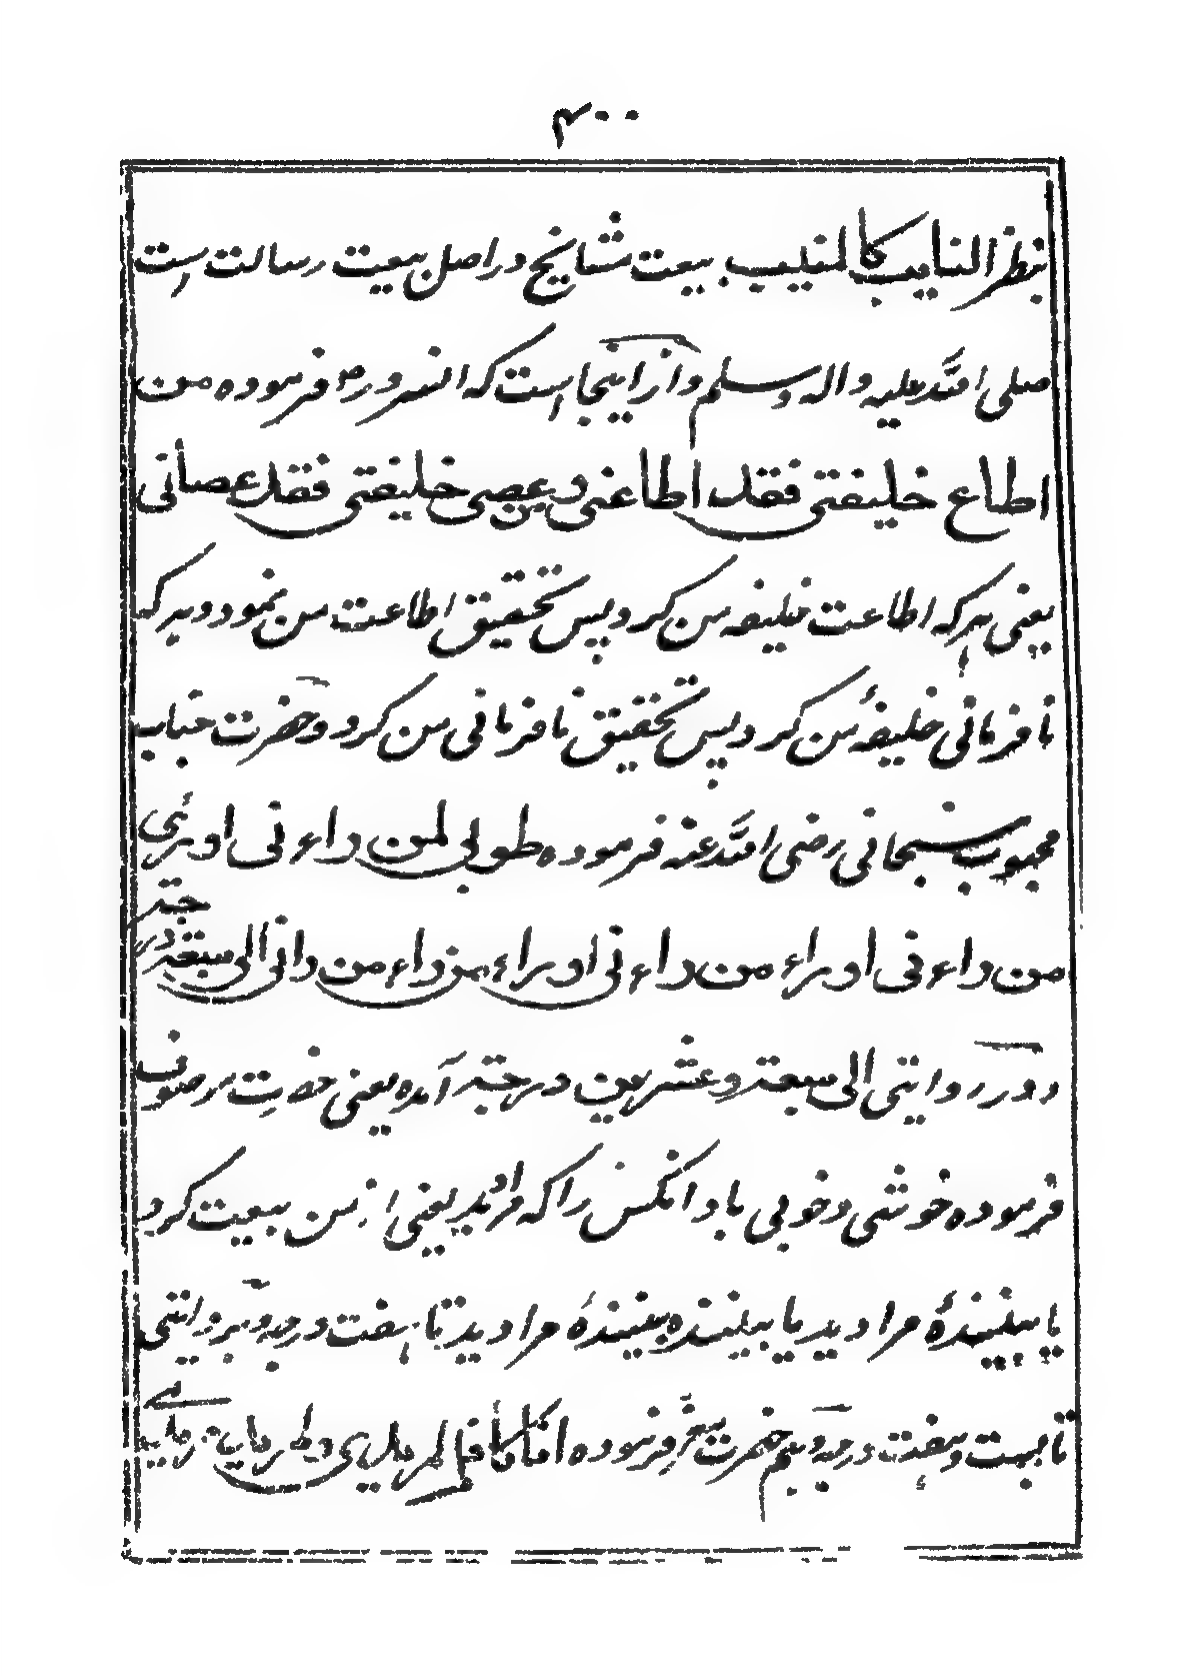 ۴۰۰
بنظر النایب کالمنیب بیعت مشایخ در اصل بیعت رسالت است
صلی الله علیه و اله وسلم و از اینجا است که انسرور ص فرموده من
اطاع خلیفتی فقد اطاعنی و من عصی خلیفتی فقد عصانی
یعنی هر که اطاعت خلیفه من کرد پس تحقیق اطاعت من نمود و هر که
نا فرمانی خلیفهٔ من کرد پس تحقیق نا فرمانی من کرد و حضرت جناب
محبوب سبحانی رضی الله عنه فرموده طوبی لمن راءنی او رئی
من راءنی او راء من راءنی او راء من راء من رانی الی سبعة درجة
و در روایتی الی سبعة و عشرین درجة آمده یعنی حضرت موصوف
فرموده خوشی و خوبی باد انکس را که مرا دید یعنی از من بیعت کرد
یا بینندهٔ مرا دید یا بیننده بینندهٔ مرا دید تا هفت درجه و بروایتی
تا بست و هفت درجه و هم حضرت فرموده انا کافل